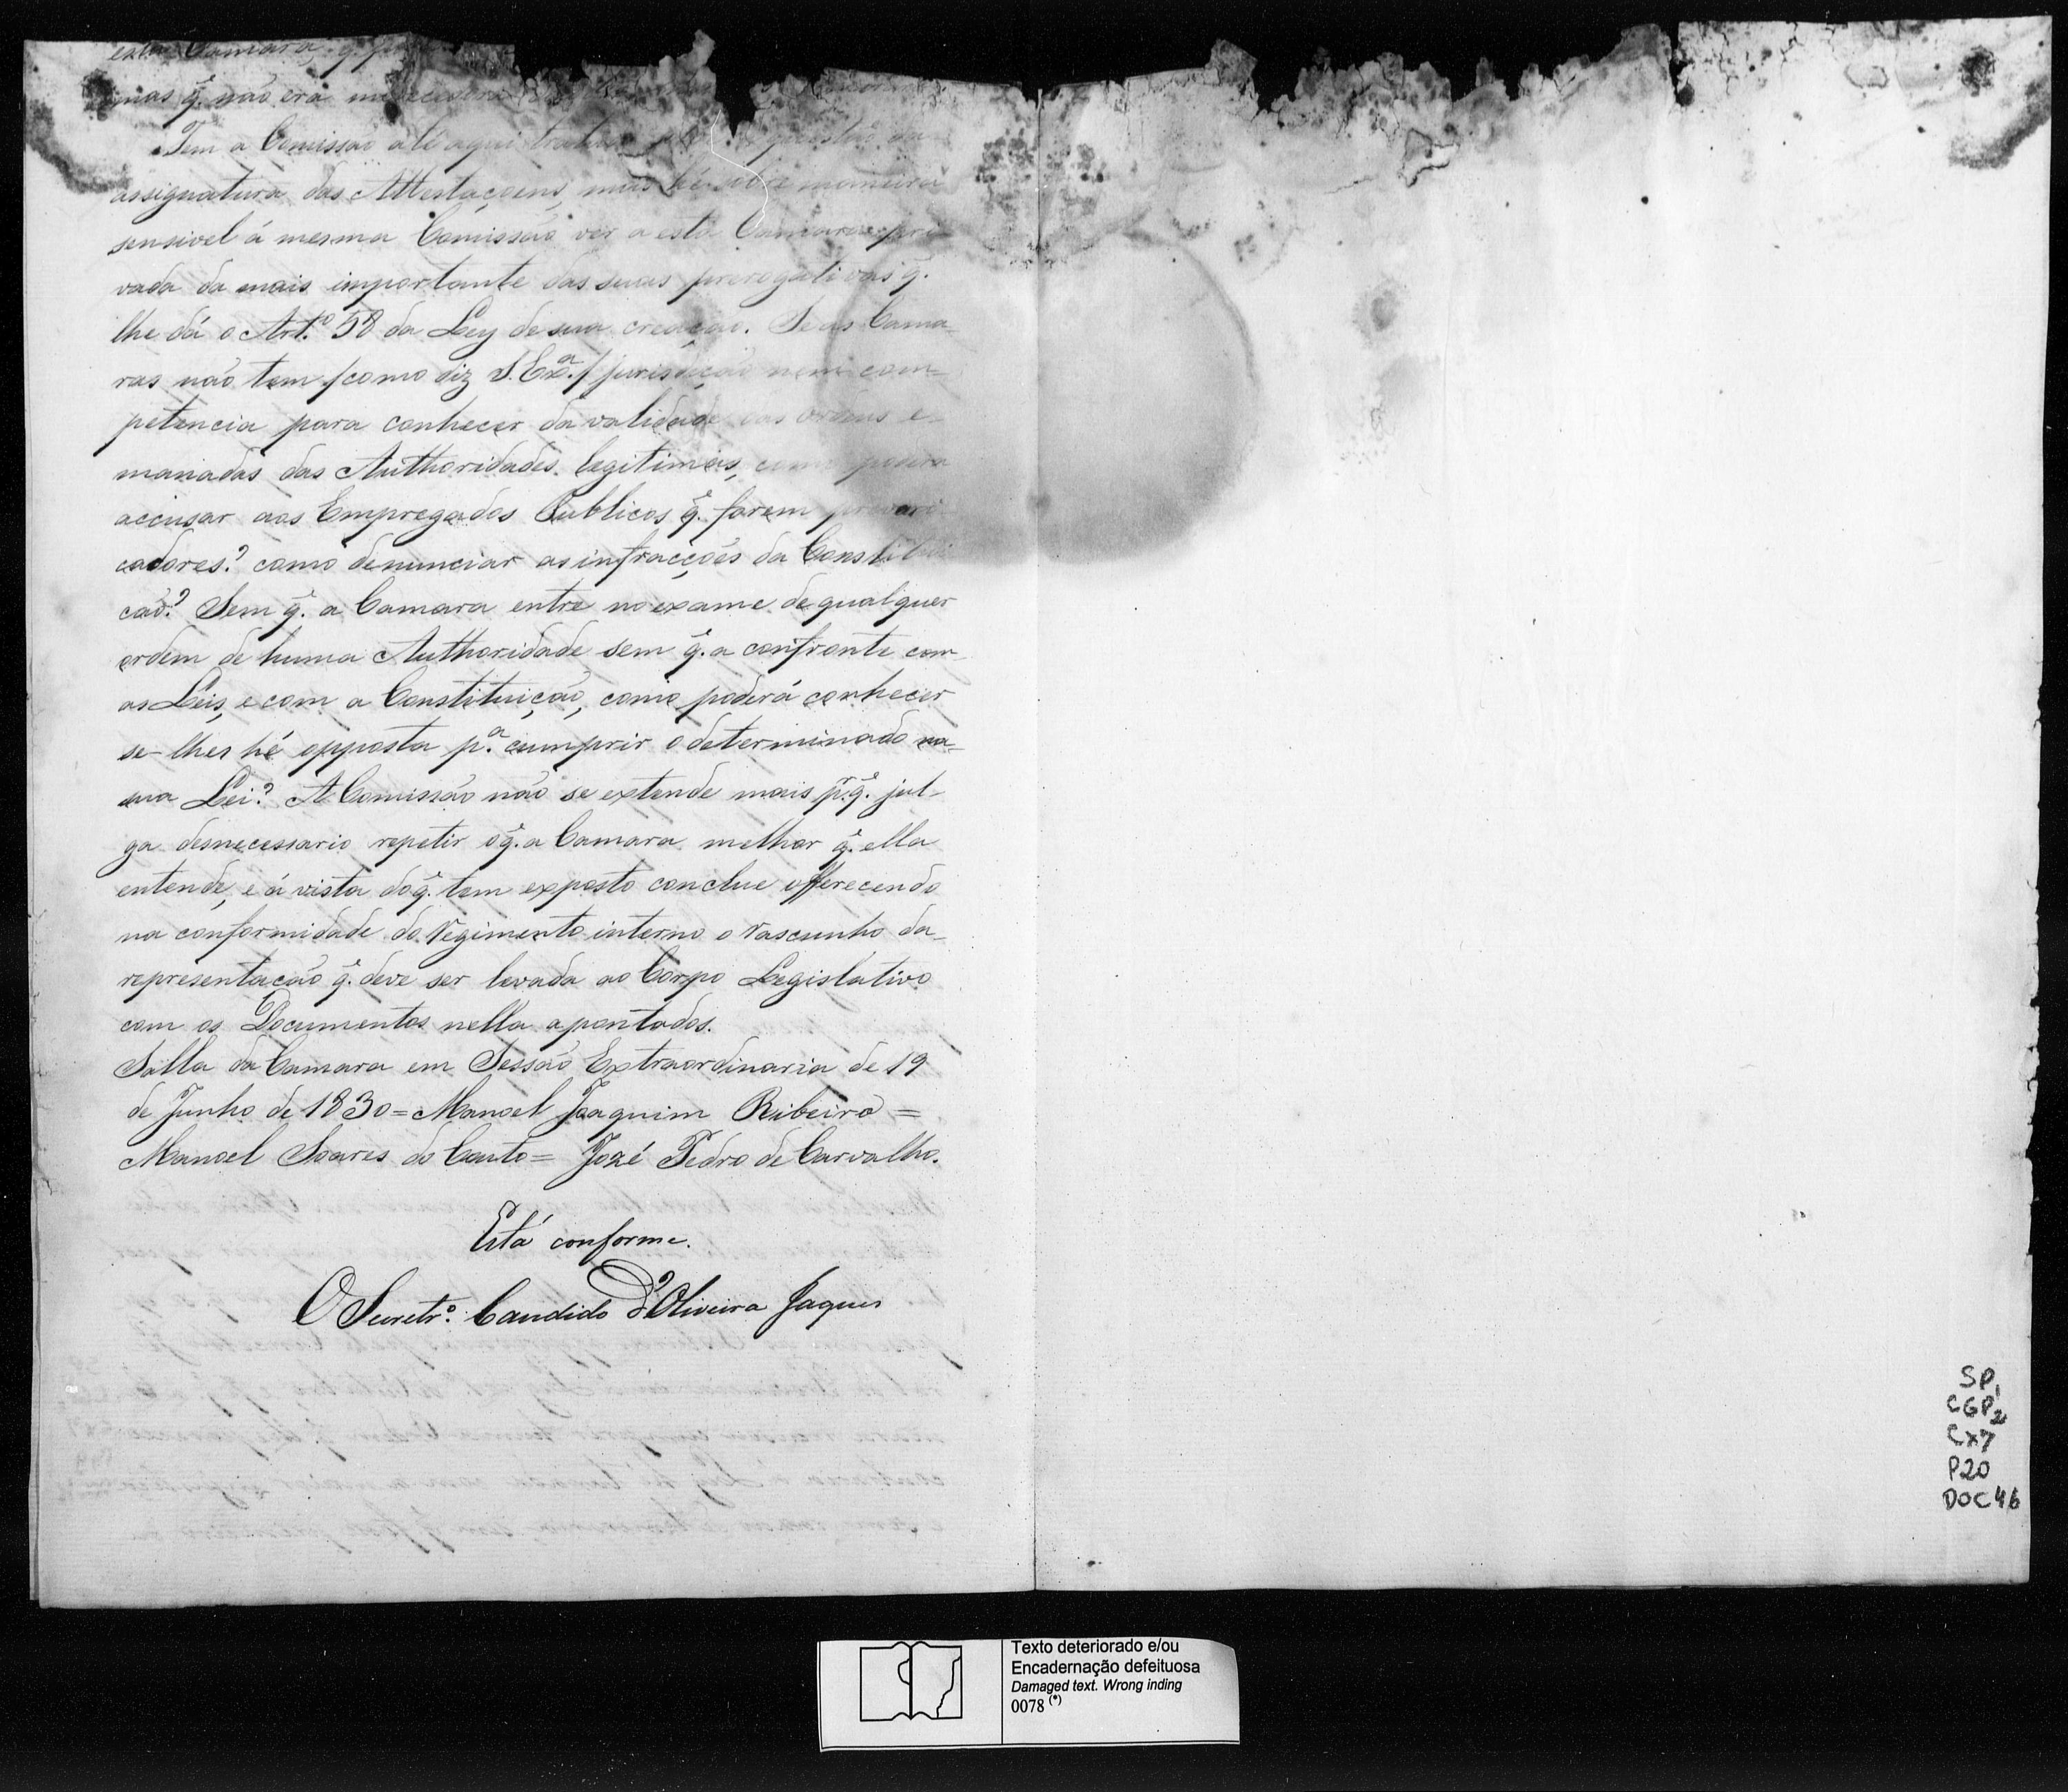 esta Camara, q̃.
mas q̃. não era
Tem a Comissão até aqui
assignatura das Attestaçoens, mas hé sobre maneira
sensivel á mesma Comissão ver a esta Camara pri
vada da mais importante das suas prerogativas q̃.
lhe dá o Art.º 58 da Ley de sua creação. Se as Cama=
ras não tem /como diz S. Exª./ jurisdição nem com=
petencia para conhecer da validade das ordens e-
manadas das Authoridades legitimas, como poderá
accusar aos Empregados Publicos q̃. forem prevari
cadores? como denunciar as infracções da Constitui
cão? Sem q̃. a Camara entre no exame de qualquer
ordem de huma Authoridade sem q̃. a confronte com-
as Leis, e com a Constituição, como poderá conhecer
se-lhes hé opposta p.ª cumprir o determinado na=
sua Lei? A Comissão não se extende mais p.r q̃. jul-
ga desnecessario repetir o q̃. a Camara melhor q̃. ella
entende, e á vista do q̃. tem exposto conclue offerecendo
na conformidade do Regimento interno o rascunho da-
representação q̃. deve ser levada ao Corpo Legislativo
com os Documentos nella apontados.
Salla da Camara em Sessão Extraordinaria de 19
de Junho de 1830 = Manoel Joaquim Ribeiro =
Manoel Soares do Couto = José Pedro de Carvalho.
Está conforme.
O Secretr.º Candido d'Oliveira Jaques
SP1
CGP2
CX7
P20
DOC46
Texto deteriorado e/ou
Encadernação defeituosa
Damaged text. Wrong inding
0078 (*)